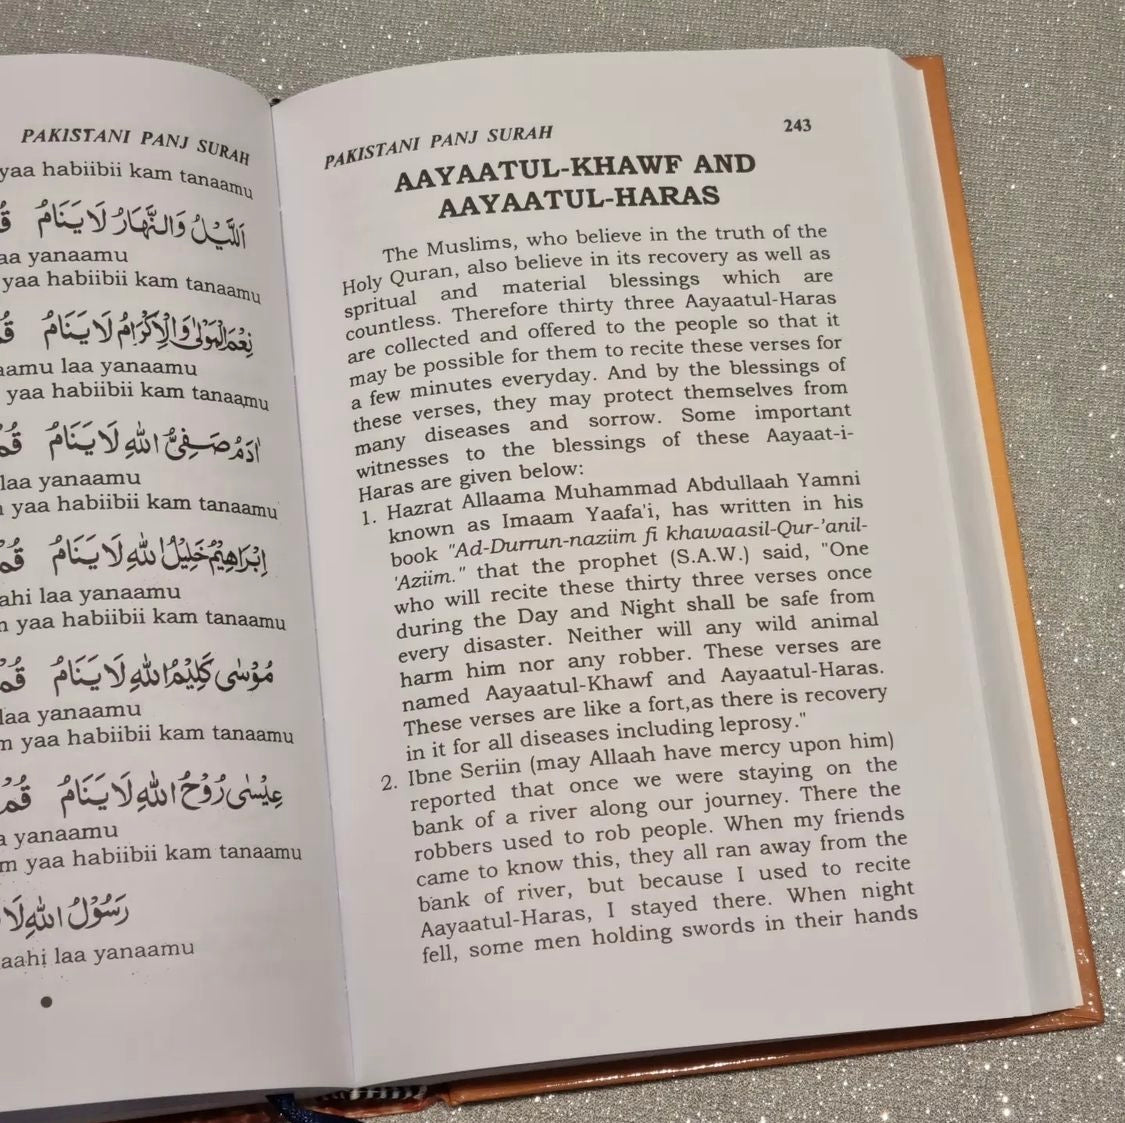 PAKISTANI PANJ SURAH
yaa habiibii kam tanaamu
اَللَّيْلُ وَالنَّهَارُ لَا يَنَامُ
aa yanaamu
yaa habiibii kam tanaamu
نِعْمَ الْمَوْلٰى وَالْاِكْرَامُ لَا يَنَامُ
aamu laa yanaamu
yaa habiibii kam tanaamu
اٰدَمُ صَفِيُّ اللهِ لَا يَنَامُ
laa yanaamu
yaa habiibii kam tanaamu
اِبْرَاهِيْمُ خَلِيْلُ اللهِ لَا يَنَامُ
ahi laa yanaamu
yaa habiibii kam tanaamu
مُوْسٰى كَلِيْمُ اللهِ لَا يَنَامُ
laa yanaamu
m yaa habiibii kam tanaamu
عِيْسٰى رُوْحُ اللهِ لَا يَنَامُ
a yanaamu
m yaa habiibii kam tanaamu
رَسُوْلُ اللهِ لَا
aahi laa yanaamu
PAKISTANI PANJ SURAH 243
AAYAATUL-KHAWF AND
AAYAATUL-HARAS
The Muslims, who believe in the truth of the
Holy Quran, also believe in its recovery as well as
spritual and material blessings which are
countless. Therefore thirty three Aayaatul-Haras
are collected and offered to the people so that it
may be possible for them to recite these verses for
a few minutes everyday. And by the blessings of
these verses, they may protect themselves from
many diseases and sorrow. Some important
witnesses to the blessings of these Aayaat-i-
Haras are given below:
1. Hazrat Allaama Muhammad Abdullaah Yamni
known as Imaam Yaafa'i, has written in his
book "Ad-Durrun-naziim fi khawaasil-Qur-'anil-
'Aziim." that the prophet (S.A.W.) said, "One
who will recite these thirty three verses once
during the Day and Night shall be safe from
every disaster. Neither will any wild animal
harm him nor any robber. These verses are
named Aayaatul-Khawf and Aayaatul-Haras.
These verses are like a fort,as there is recovery
in it for all diseases including leprosy."
2. Ibne Seriin (may Allaah have mercy upon him)
reported that once we were staying on the
bank of a river along our journey. There the
robbers used to rob people. When my friends
came to know this, they all ran away from the
bank of river, but because I used to recite
Aayaatul-Haras, I stayed there. When night
fell, some men holding swords in their hands